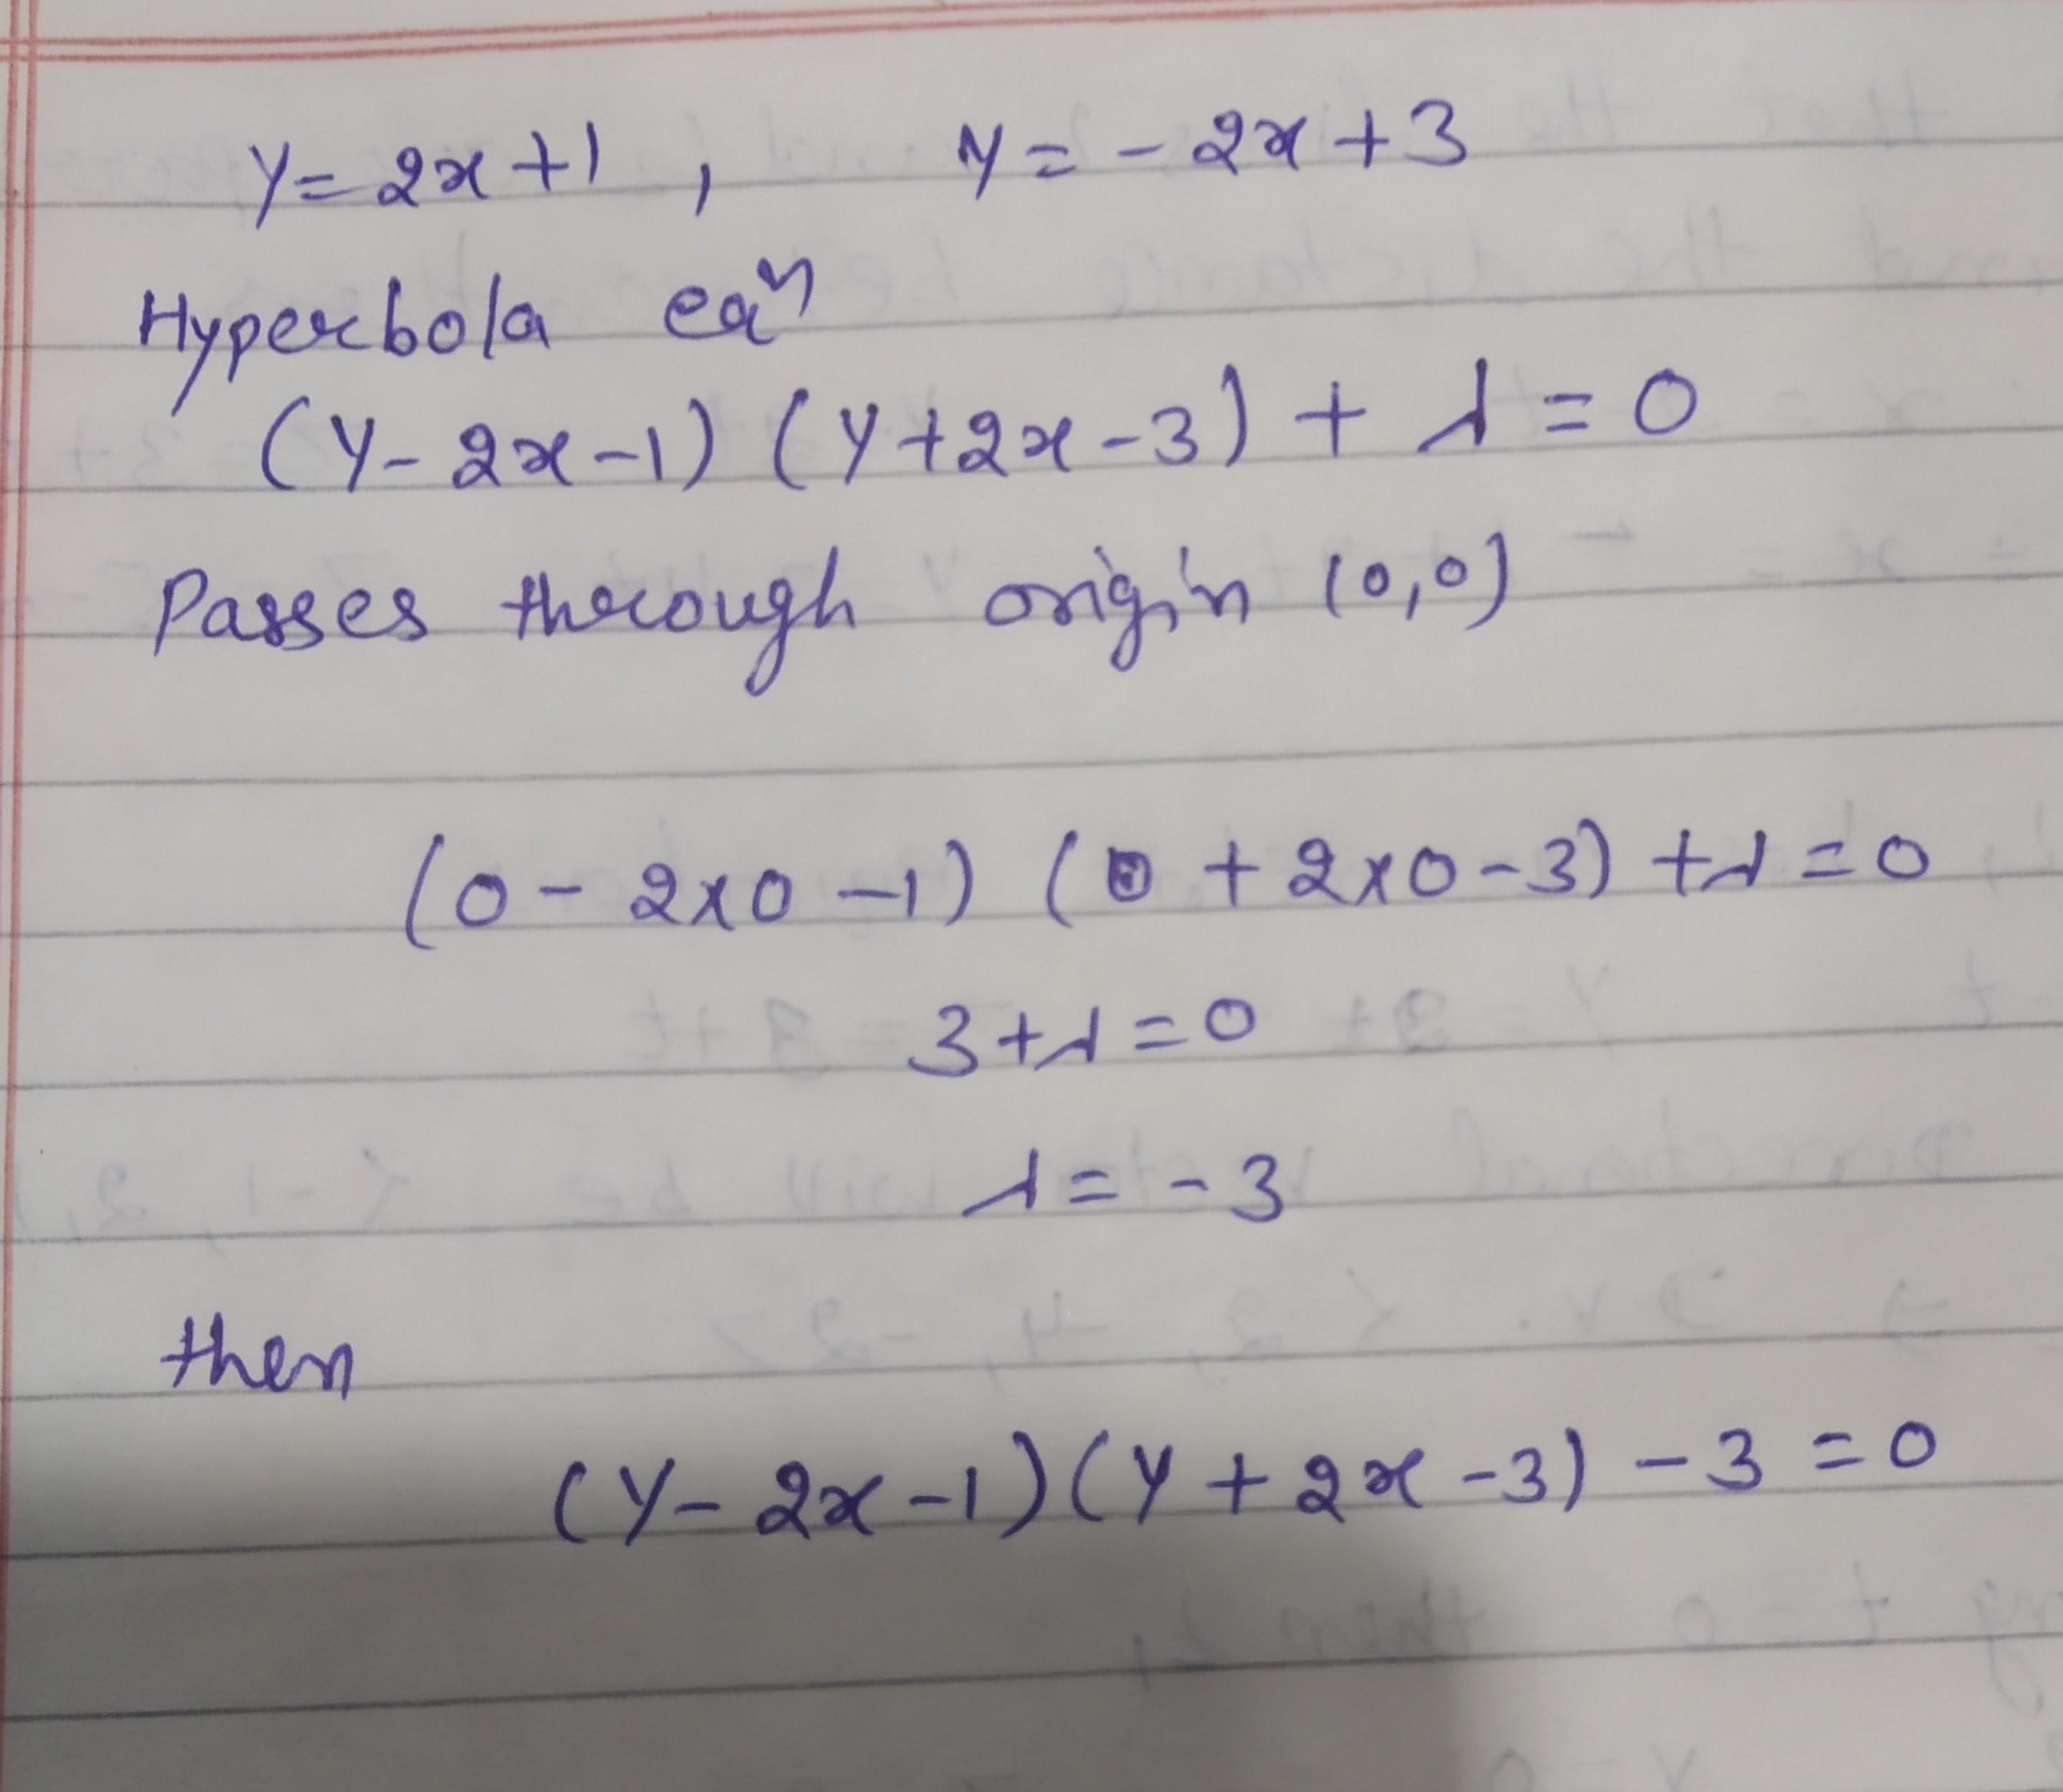 y = 2x + 1 , y = - 2x + 3
Hyperbola eqⁿ
(y - 2x - 1) (y + 2x - 3) + λ = 0
Passes through origin (0,0)
(0 - 2x0 - 1) (0 + 2x0 - 3) + λ = 0
3 + λ = 0
λ = - 3
then
(y - 2x - 1) (y + 2x - 3) - 3 = 0